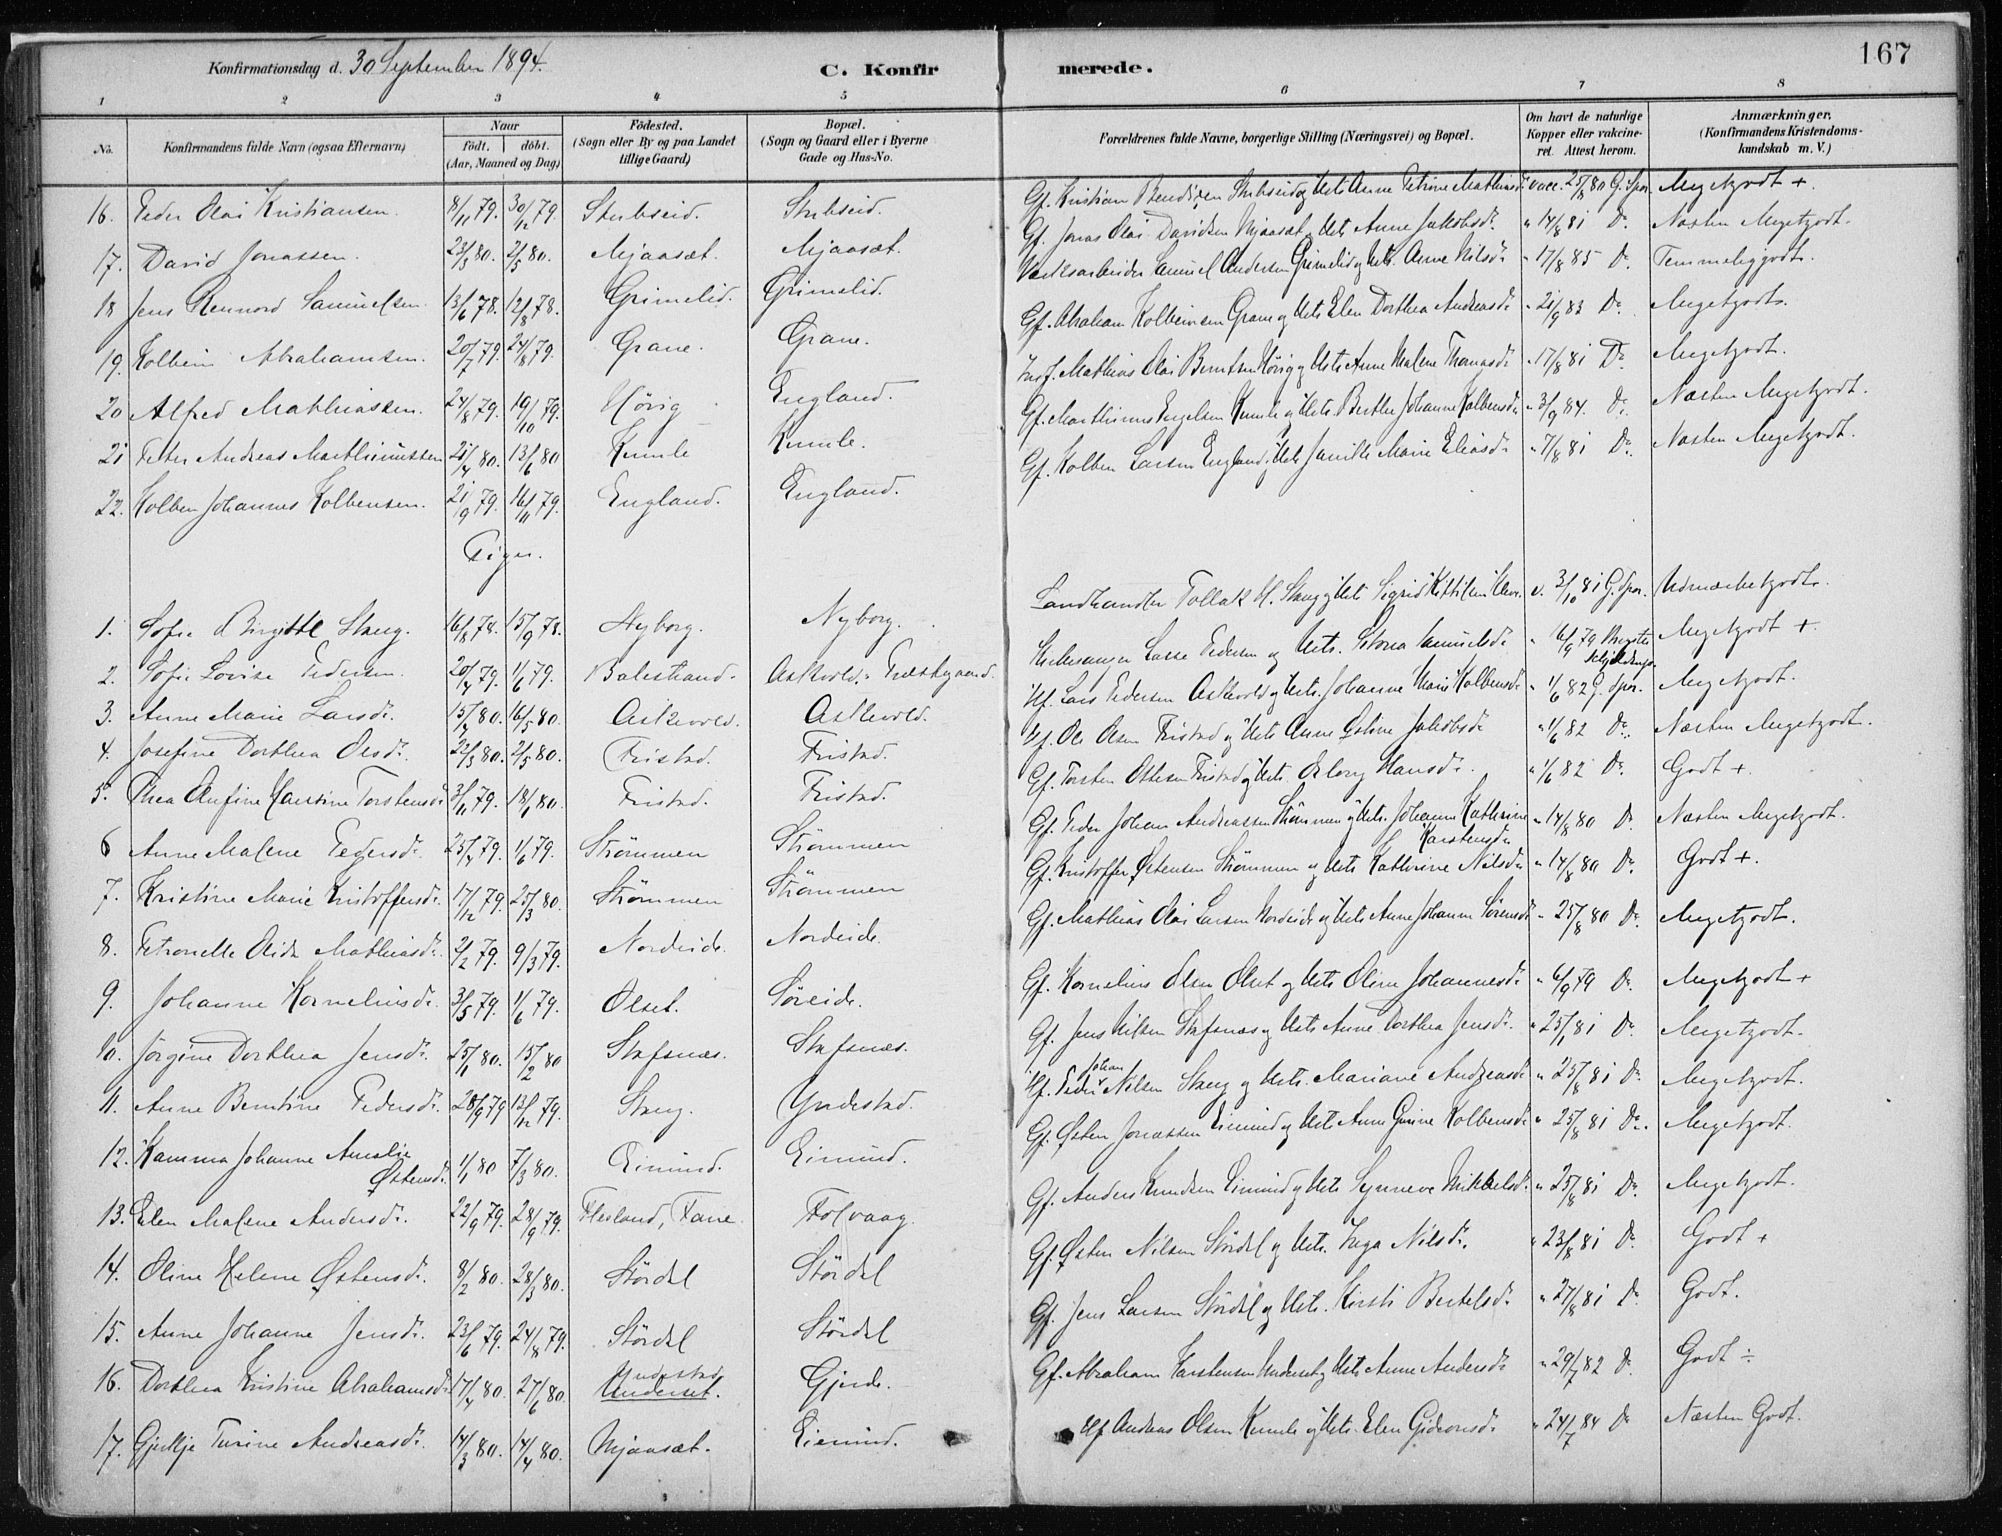 167
Konfirmationsdag d. 30 September 1894. C. Konfirmerede.
1 2 3 4 5 6 7 8
No. Konfirmandens fulde Navn (ogsaa Efternavn) Naar født. døbt. (Aar, Maaned og Dag) Fødested. (Sogn eller By og paa Landet tillige Gaard) Bopæl. (Sogn og Gaard eller i Byerne Gade og Hus-No. Forældrenes fulde Navne, borgerlige Stilling (Næringsvei) og Bopæl. Om havt de naturlige Kopper eller vakcineret. Attest herom. Anmærkninger, (Konfirmandens Kristendomskundskab m. V.)
16. Peder Olai Kristiansen. 8/11 79. 30/12 79. Stubseid. Stubseid. Gf. Kristian Bendixen Stubseid og Hst. Anne Petrine Mathiasd. vacc. 25/8 80 G. Spor. Megetgodt +.
17. David Jonassen. 23/3 80. 2/5 80. Mjaasæt. Mjaasæt. Gf. Jonas Olai Davidsen Mjaasæt og Hst. Anne Jakobsd. " 14/8 81 Do. Næsten Megetgodt.
18 Jens Rennord Samuelsen. 13/6 78. 12/8 78. Grimelid. Grimelid. Værksarbeider Samuel Andersen Grimelid og Hst. Anne Nilsd. " 17/8 85 Do. Temmeliggodt.
19. Kolbein Abrahamsen. 20/7 79. 24/8 79. Grane. Grane. Gf. Abraham Kolbeinsen Grane og Hst. Elen Dorthea Andreasd. " 21/9 83 Do. Megetgodt.
20 Alfred Mathiassen. 24/8 79. 19/10 79. Hövig England. Inf. Mathias Olai Berntsen Hövig og Hst. Anne Malene Thomasd. " 17/8 81 Do. Megetgodt.
21 Petter Andreas Marthinussen 21/4 80. 13/6 80 Kumle Kumle. Gf. Marthinus Engelsen Kumle og Hst. Berthe Johanne Kolbensd. " 3/9 84. Do. Næsten Megetgodt.
22. Kolben Johannes Kolbensen. 21/9 79. 16/11 79. England. England. Gf. Kolben Larsen England og Hst. Jamille Marie Eliasd. " 7/8 81 Do. Næsten Megetgodt.
Piger.
1. Sofie Birgitte Skeug. 16/8 78. 15/9 78. Nyborg. Nyborg. Landhandler Tollak H. Skeug og Hst. Sigrid Kittilsen v. 3/10 81 G. Spor. Udmærketgodt.
2. Sofie Lovise Pedersen. 20/4 79. 1/6 79. Balestrand. Askvold. Præstegaard. Kirkesanger Lasse Pedersen og Hst. Samuelsd. " 16/9 79 Megetgodt +
3. Anne Marie Larsd. 15/4 80. 16/5 80. Askevold. Askevold. Hf. Lars Pedersen Askevold og Hst. Johanne Marie Kolbensd. " 1/6 82 G. Spor. Megetgodt.
4. Josefine Dorthea Olsd. 22/3 80. 2/5 80. Fristad. Fristad. Hf. Ole Olsen Fristad og Hst. Anne Jakobsd. " 1/6 82 Do. Næsten Megetgodt.
5. Thea Anfine Hansine Torstensd. 3/11 79. 18/1 80. Fristad. Fristad. Gf. Torsten Ottesen Fristad og Hst. Hansd. " 1/6 82 Do. Godt +.
6 Anne Malene Pedersd. 25/4 79. 1/6 79. Strömmen Strömmen Gf. Peder Johan Andreassen Strömmen og Hst. Johanne Kathrine Karstensd. " 14/8 80 Do. Næsten Megetgodt.
7. Kristine Marie Kristoffersd. 17/12 79. 25/3 80. Strömmen Strömmen Gf. Kristoffer Østensen Strömmen og Hst. Kathrine Nilsd. " 14/8 80 Do. Godt +.
8. Petronelle Olide Mathiasd. 2/2 79. 9/3 79. Nordeide. Nordeide. Gf. Mathias Olai Larsen Nordeide og Hst. Anne Johanne Sörensd. " 25/8 80 Do. Megetgodt.
9. Johanne Kornelius d. 3/5 79. 1/6 79. Olset. Söreide. Gf. Kornelius Olsen Olset og Hst. Oline Johannesd. " 6/9 79 Do. Megetgodt +
10. Jörgine Dorthea Jensd. 25/1 80. 15/2 80 Stafsnæs. Stafsnæs. Gf. Jens Nilsen Stafsnæs og Hst. Anne Dorthea Jensd. " 25/1 81 Do. Megetgodt.
11. Anne Bentine Pedersd. 28/9 79 13/12 79. Skeug. Yndestad. Hf. Peder Johan Nilsen Skeug og Hst. Mariane Andreasd. " 25/8 81 Do. Megetgodt.
12. Kamma Johanne Amalie Østensd. 1/1 80 7/3 80. Eimind. Eimind. Gf. Østen Jonassen Eimind og Hst. Anne Gurine Kolbensd. " 25/8 81 Do. Megetgodt.
13. Elen Malene Andersd. 22/9 79. 28/9 79. Flesland, Fane. Folvaag. Gf. Anders Knudsen Eimind og Hst. Synneve Mikkelsd. " 25/8 81 Do. Megetgodt.
14. Oline Helene Østensd. 8/2 80. 28/3 80. Stördal Stördal Gf. Østen Nilsen Stördal og Hst. Inga Nilsd. " 23/8 81 Do. Godt +
15. Anne Johanne Jensd. 23/6 79. 24/8 79. Stördal Stördal Gf. Jens Larsen Stördal og Hst. Kirsti Bertelsd. " 27/8 81 Do. Godt.
16. Dorthea Kristine Abrahamsd. 17/4 80. 27/6 80. Yndestad Underset. Gjerde. Gf. Abraham Karstensen Underset og Hst. Anne Andersd. " 29/7 82 Do. Godt ÷
17. Gjertje Turine Andreasd. 14/3 80. 14/4 80. Mjaasæt. Eimind. Hf. Andreas Olsen Kumle og Hst. Elen Gideonsd. " 24/7 84 Do. Næsten Godt.